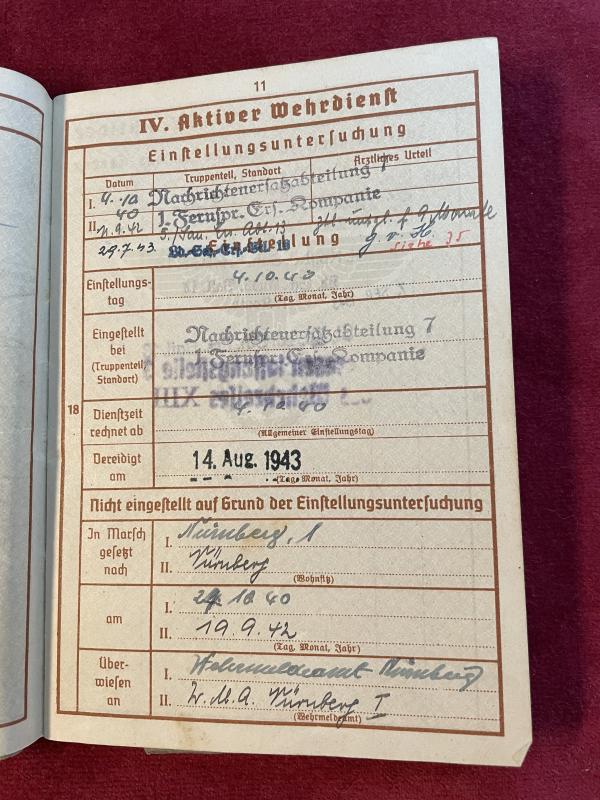 11
IV. Aktiver Wehrdienst
Einstellungsuntersuchung
Datum Truppenteil, Standort Ärztliches Urteil
I. 4.10 Nachrichtenersatzabteilung 7
40 1. Fernspr. Ers.-Kompanie
II. 11.9.42 f. 9 Monate
29.7.43 Einstellung g. v. H.
siehe 35
Einstellungs-
tag
4.10.40
(Tag, Monat, Jahr)
Eingestellt
bei
(Truppenteil,
Standort)
Nachrichtenersatzabteilung 7
1. Fernspr. Ers.-Kompanie
18
Dienstzeit
rechnet ab
(Allgemeiner Einstellungstag)
Vereidigt
am
14. Aug. 1943
(Tag, Monat, Jahr)
Nicht eingestellt auf Grund der Einstellungsuntersuchung
In Marsch
gesetzt
nach
I. Nürnberg, 1
II. Nürnberg
(Wohnsitz)
am
I. 10 40
II. 19.9.42
(Tag, Monat, Jahr)
Über-
wiesen
an
I. Wehrmeldeamt Nürnberg
II. W.M.A. Nürnberg I
(Wehrmeldeamt)